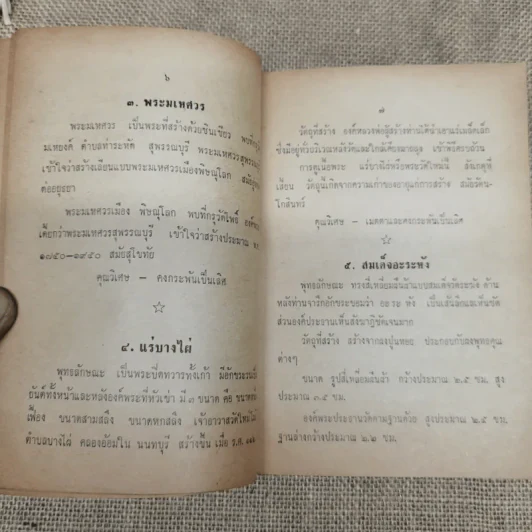 ๖
๓. พระมเหศวร
พระมเหศวร เป็นพระที่สร้างด้วยชินเขียว พบที่กรุ
มเหยงค์ ตำบลท่าระหัด สุพรรณบุรี พระมเหศวรสุพรรณ
เข้าใจว่าสร้างเลียนแบบพระมเหศวรเมืองพิษณุโลก
ต่ออยุธยา
พระมเหศวรเมือง พิษณุโลก พบที่กรุวัดโพธิ์ องค์
เตี้ยกว่าพระมเหศวรสุพรรณบุรี เข้าใจว่าสร้างประมาณ พ.ศ.
๑๗๕๐–๑๙๕๐ สมัยสุโขทัย
คุณวิเศษ – คงกระพันเป็นเลิศ
๔. แร่บางไผ่
พุทธลักษณะ เป็นพระปิดทวารทั้งเก้า มีอักขระ
ยันต์ทั้งหน้าและหลังองค์พระที่หัวเข่า มี ๓ ขนาด คือ ขนาด
เฟื้อง ขนาดสามสลึง ขนาดหกสลึง เจ้าอาวาสวัด
ตำบลบางไผ่ คลองอ้อมใน นนทบุรี สร้างขึ้น เมื่อ ร.ศ.
๗
วัตถุที่สร้าง องค์หลวงพ่อผู้สร้างท่านได้นำเอาแร่เม็ดเล็ก
ซึ่งมีอยู่ทั่วบริเวณหลังวัดและใกล้เคียงผสมผง
การดูเนื้อพระ แร่บางไผ่หรือพระวัดใหม่นี้ สังเกตุที่
เสี้ยน วัตถุนี้เกิดจากความเก่าของอายุแก่การสร้าง สมัยรัตน–
โกสินทร์
คุณวิเศษ – เมตตาและคงกระพันเป็นเลิศ
๕. สมเด็จอะระหัง
พุทธลักษณะ ทรงสี่เหลี่ยมผืนผ้าแบบสมเด็จวัดระฆัง ด้าน
หลังท่านจารึกอักขระขอมว่า อะระหัง เป็นเส้นนูนคมเห็นชัด
ส่วนองค์ประธานเห็นสังฆาฏิชัดเจนมาก
วัตถุที่สร้าง สร้างจากผงปูนหอย ประกอบกับผงพุทธคุณ
ต่างๆ
ขนาด รูปสี่เหลี่ยมผืนผ้า กว้างประมาณ ๒.๕ ซม. สูง
ประมาณ ๓.๕ ซม.
องค์พระประธานวัดตามฐานด้วย สูงประมาณ ๒.๕ ซม.
ฐานล่างกว้างประมาณ ๒.๒ ซม.